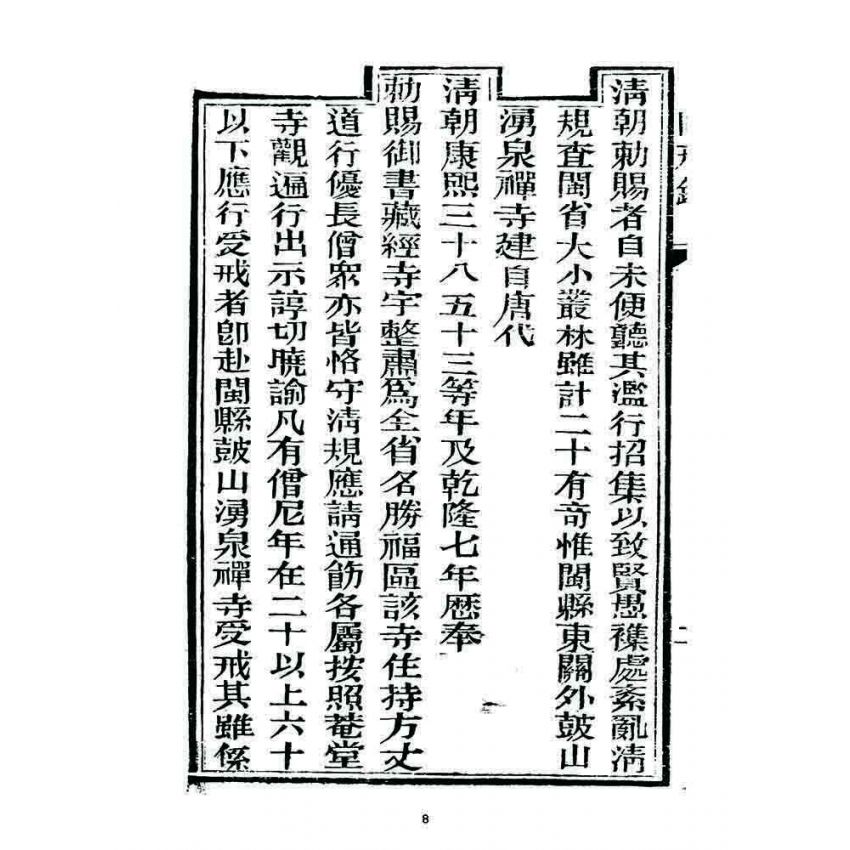 清朝勅賜者自未便聽其濫行招集以致賢愚襍處紊亂清
規查閩省大小叢林雖計二十有奇惟閩縣東關外鼓山
湧泉禪寺建自唐代
清朝康熙三十八五十三等年及乾隆七年歷奉
勅賜御書藏經寺宇整肅爲全省名勝福區該寺住持方丈
道行優長僧衆亦皆恪守淸規應請通飭各屬按照菴堂
寺觀遍行出示諄切曉諭凡有僧尼年在二十以上六十
以下應行受戒者卽赴閩縣鼓山湧泉禪寺受戒其雖係
二
8